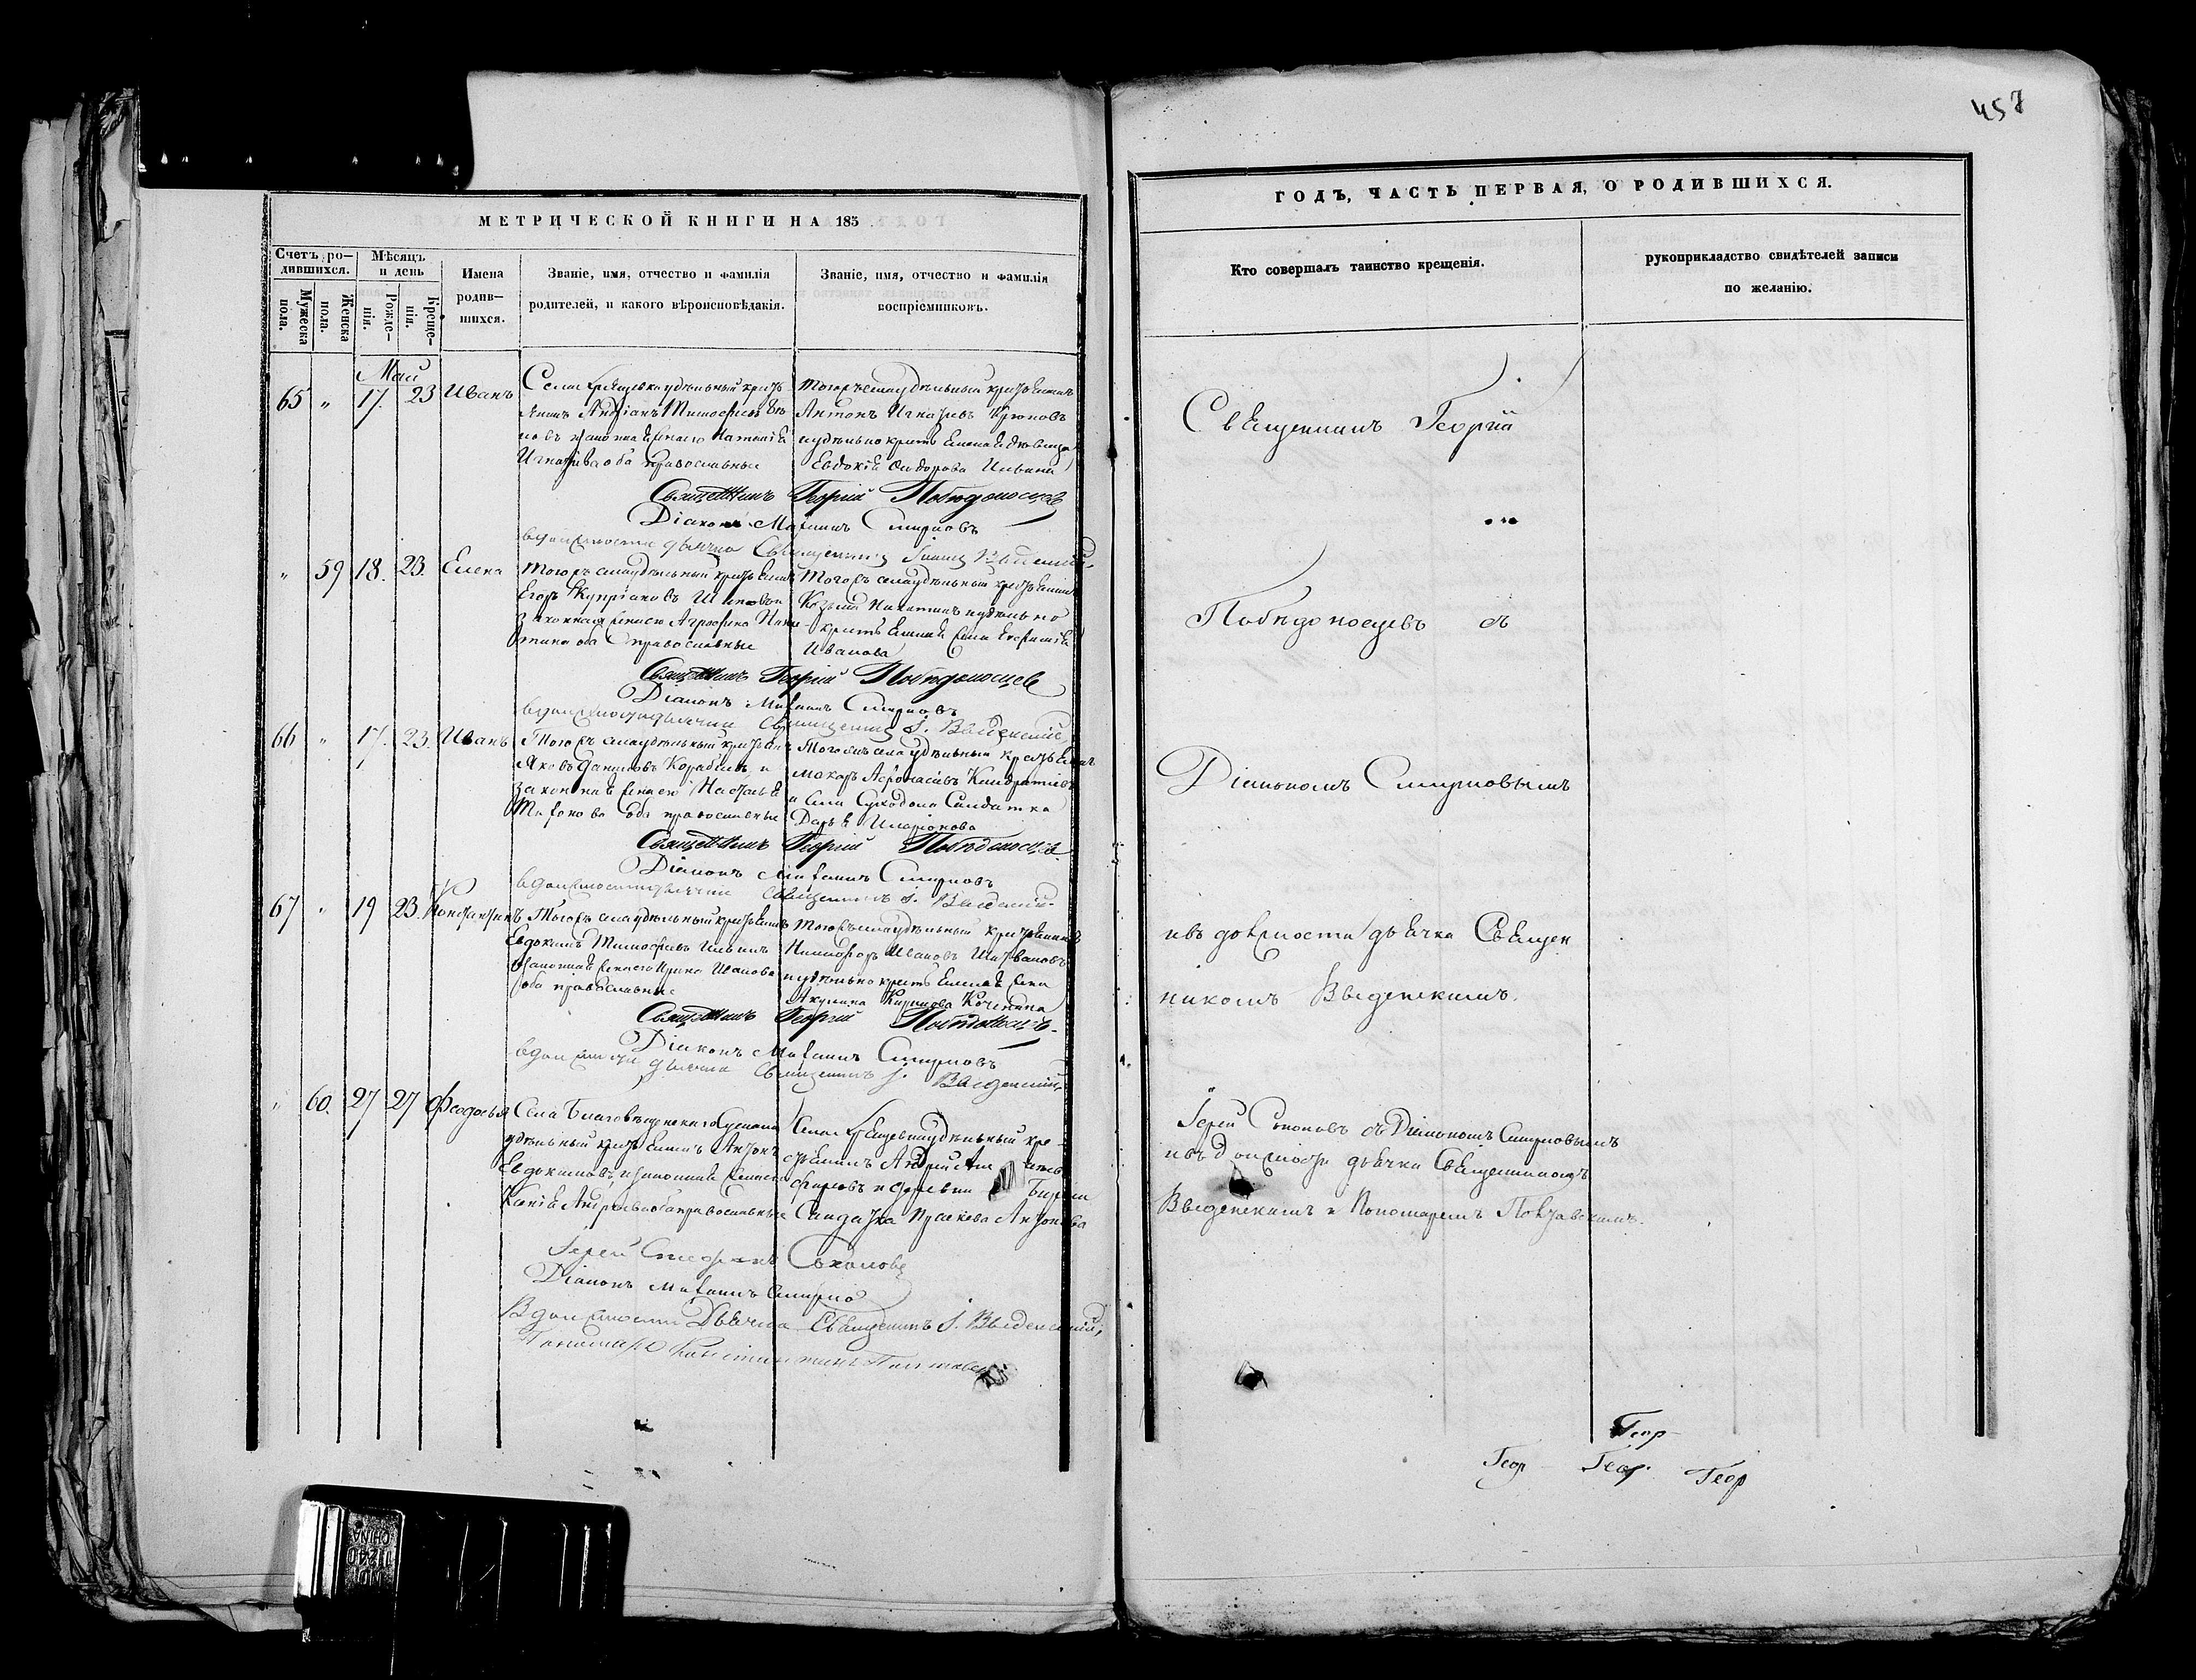 457
МЕТРИЧЕСКОЙ КНИГИ НА 185
Счетъ ро-
дившихся.
Мужеска
пола.
Женска
пола.
Мѣсяцъ
и день
Рожде-
нія.
Креще-
нія.
Имена
родив-
шихся.
Званіе, имя, отчество и фамилія
родителей, и какого вѣроисповѣданія.
Званіе, имя, отчество и фамилія
воспріемниковъ.
Май
65 „ 17. 23 Иванъ
Села удѣльный кресть
янинъ Андріанъ Тимофѣевъ
законная жена его Наталія
Игнатьева оба православные
Тогожъ села удѣльный крестьянинъ
Антонъ Игнатьевъ Крюковъ
и удѣльнокрестьянская дѣвица
Евдокія Ѳидорова Ильина
Священникъ Георгій Побѣдоносцевъ
Діаконъ Михаилъ Смирновъ
в должности дьячка Священникъ Іоаннъ Введенскій
„ 59 18. 23. Елена
Тогожъ села удѣльный крестьянинъ
Егоръ Купріановъ
законная жена его Агрофена Ники-
тина оба православные
Тогожъ села удѣльный крестьянинъ
Козьма Никитинъ и удѣльно
крестьянская жена
Иванова
Священникъ Георгій Побѣдоносцевъ
Діаконъ Михаилъ Смирновъ
в должности дьячка Священникъ І. Введенскій
66 „ 17. 23. Иванъ
Тогожъ села удѣльный крестьянинъ
Яковъ Даниловъ Кораблевъ и
законная жена его Настасья
оба православные
Тогожъ села удѣльный крестьянинъ
Макаръ Афонасьевъ Кондратьевъ
и села Суходола Солдатка
Дарья Иларіонова
Священникъ Георгій Побѣдоносцевъ
Діаконъ Михаилъ Смирновъ
в должности дьячка Священникъ І. Введенскій
67 „ 19 23. Константинъ
Тогожъ села удѣльный крестьянинъ
Евдокимъ Тимофѣевъ Ильинъ
законная жена его Ирина Иванова
оба православные
Тогожъ села удѣльный крестьянинъ
Никифоръ Ивановъ
и удѣльно крестьянская жена
Акулина Кирилова
Священникъ Георгій Побѣдоносцевъ
Діаконъ Михаилъ Смирновъ
в должности дьячка Священникъ І. Введенскій
„ 60. 27 27 Феодосья
Села Благовѣщенскаго
удѣльный крестьянинъ Антонъ
Евдокимовъ, и законная жена его
Ксенія Андреева оба православные
Села удѣльный кре-
стьянинъ Андрей
и деревни
Солдатка Прасковья Антонова
Іерей Стефанъ Соколовъ
Діаконъ Михаилъ Смирно
В должности Дьячка Священникъ І. Введенскій,
Пономарь Константинъ Полтавскій
ГОДЪ, ЧАСТЬ ПЕРВАЯ, О РОДИВШИХСЯ.
Кто совершалъ таинство крещенія.
рукоприкладство свидѣтелей записи
по желанію.
Священникъ Георгій
Побѣдоносцевъ съ
Діакономъ Смирновымъ
ивъ должности дьячка Священ
никомъ Введенскимъ.
Іерей Соколовъ съ Діакономъ Смирновымъ
ивъ должности дьячка Священникомъ
Введенскимъ и Пономаремъ Полтавскимъ.
Геор
Геор Геор Геор